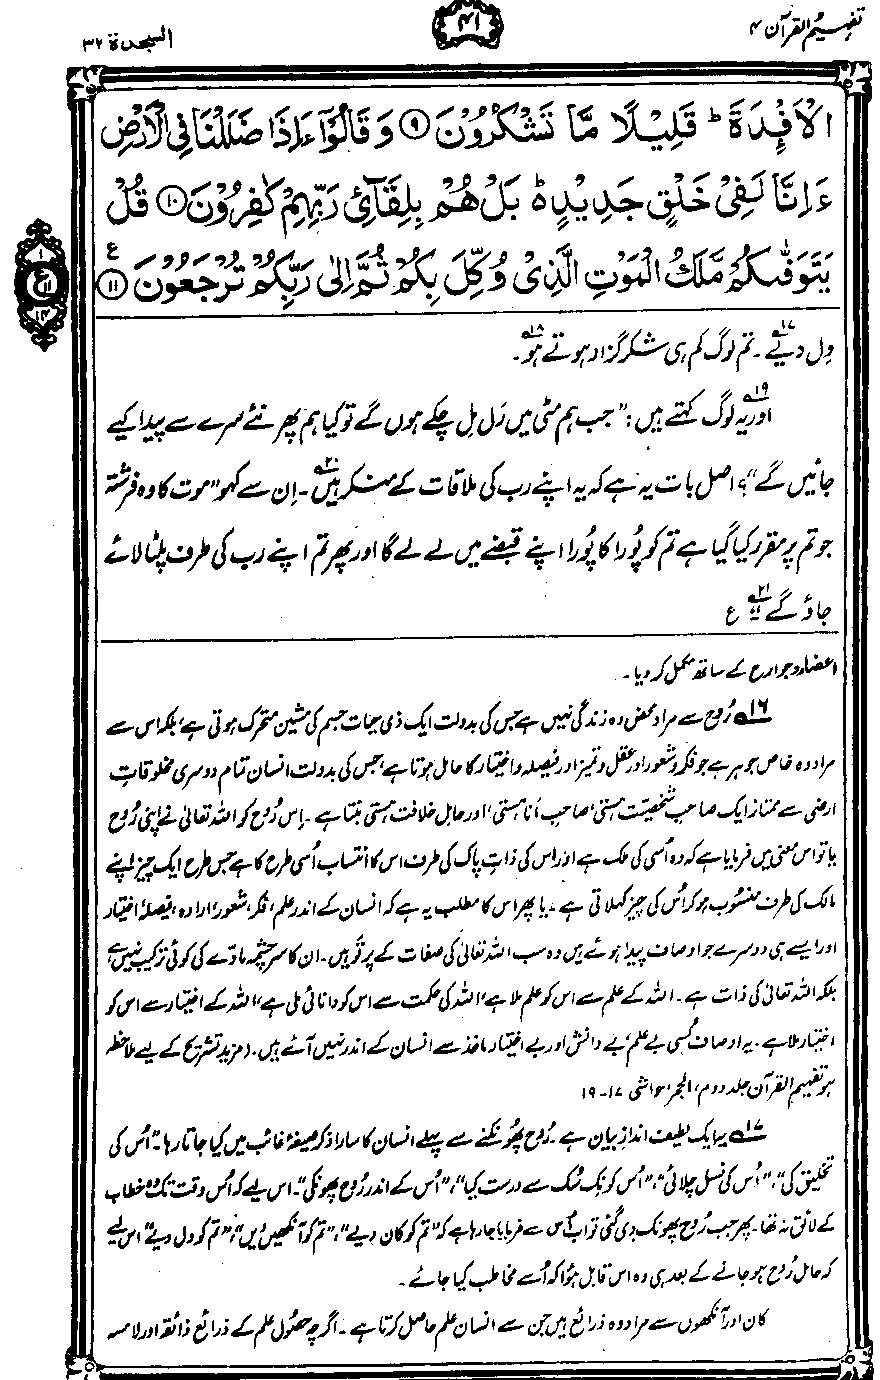 تفہیم القرآن ۴
۴۱
السجدۃ ۳۲
الْاَفْـِٕدَةَ ؕ قَلِیْلًا مَّا تَشْكُرُوْنَ ۝۹ وَ قَالُوْۤا ءَاِذَا ضَلَلْنَا فِی الْاَرْضِ
ءَاِنَّا لَفِیْ خَلْقٍ جَدِیْدٍ ؕ۬ بَلْ هُمْ بِلِقَآئِ رَبِّهِمْ كٰفِرُوْنَ ۝۱۰ قُلْ
یَتَوَفّٰىكُمْ مَّلَكُ الْمَوْتِ الَّذِیْ وُكِّلَ بِكُمْ ثُمَّ اِلٰی رَبِّكُمْ تُرْجَعُوْنَ ۝۱۱ ع
۱
ع
۱۱
۱۴
دِل دیے۱۷۔ تم لوگ کم ہی شکر گزار ہوتے ہو۱۸۔
اور۱۹یہ لوگ کہتے ہیں: ”جب ہم مٹی میں رَل مِل چکے ہوں گے تو کیا ہم پھر نئے سرے سے پیدا کیے
جائیں گے“؟ اصل بات یہ ہے کہ یہ اپنے رب کی ملاقات کے منکر ہیں۲۰۔ اِن سے کہو ”موت کا وہ فرشتہ
جو تم پر مقرر کیا گیا ہے تم کو پُورا کا پُورا اپنے قبضے میں لے لے گا اور پھر تم اپنے رب کی طرف پلٹا لائے
جاؤ گے“۲۱ ع
اعضاء و جوارح کے ساتھ مکمل کر دیا۔
۱۶ رُوح سے مراد محض وہ زندگی نہیں ہے جس کی بدولت ایک ذی حیات جسم کی مشین متحرک ہوتی ہے، بلکہ اس سے
مراد وہ خاص جوہر ہے جو فکر و شعور اور عقل و تمیز اور فیصلہ و اختیار کا حامل ہوتا ہے، جس کی بدولت انسان تمام دوسری مخلوقاتِ
ارضی سے ممتاز ایک صاحبِ شخصیّت ہستی، صاحبِ اَنا ہستی، اور حاملِ خلافت ہستی بنتا ہے۔ اِس رُوح کو اللہ تعالیٰ نے اپنی رُوح
یا تو اس معنی میں فرمایا ہے کہ وہ اُسی کی مِلک ہے اور اس کی ذاتِ پاک کی طرف اس کا انتساب اُسی طرح کا ہے جس طرح ایک چیز اپنے
مالک کی طرف منسُوب ہو کر اُس کی چیز کہلاتی ہے۔ یا پھر اس کا مطلب یہ ہے کہ انسان کے اندر علم، فکر، شعور، ارادہ، فیصلہ، اختیار
اور ایسے ہی دوسرے جو اوصاف پیدا ہوئے ہیں وہ سب اللہ تعالیٰ کی صفات کے پرتَو ہیں۔ ان کا سرچشمہ مادّے کی کوئی ترکیب نہیں ہے
بلکہ اللہ تعالیٰ کی ذات ہے۔ اللہ کے علم سے اس کو علم ملا ہے، اللہ کی حکمت سے اس کو دانائی ملی ہے، اللہ کے اختیار سے اس کو
اختیار ملا ہے۔ یہ اوصاف کسی بے علم، بے دانش اور بے اختیار ماخذ سے انسان کے اندر نہیں آئے ہیں۔ (مزید تشریح کے لیے ملاحظہ
ہو تفہیم القرآن جلد دوم، الحجر، حواشی ۱۷-۱۹
۱۷ یہ ایک لطیف اندازِ بیان ہے۔ رُوح پھُونکنے سے پہلے انسان کا سارا ذکر صیغۂ غائب میں کیا جاتا رہا۔ ”اُس کی
تخلیق کی“، ”اُس کی نسل چلائی“، ”اُس کو نِک سُک سے درست کیا“، ”اُس کے اندر رُوح پھونکی“۔ اس لیے کہ اُس وقت تک وہ خطاب
کے لائق نہ تھا۔ پھر جب رُوح پھونک دی گئی تو اب اُس سے فرمایا جا رہا ہے کہ ”تم کو کان دیے“، ”تم کو آنکھیں دیں“، ”تم کو دل دیے“ اس لیے
کہ حاملِ رُوح ہو جانے کے بعد ہی وہ اس قابل ہوا کہ اُسے مخاطب کیا جائے۔
کان اور آنکھوں سے مراد وہ ذرائع ہیں جن سے انسان علم حاصل کرتا ہے۔ اگرچہ حصُولِ علم کے ذرائع ذائقہ اور لامسہ